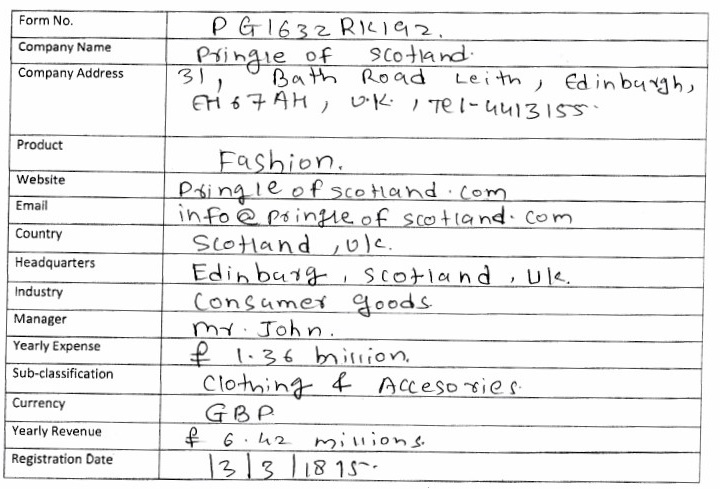 Form No. PG1632RK192.
Company Name Pringle of Scotland.
Company Address 31, Bath Road Leith, Edinburgh,
EH67AH, U.K., Tel-4413155.
Product Fashion.
Website Pringleofscotland.com
Email info@pringleofscotland.com
Country Scotland, Uk.
Headquarters Edinburg, Scotland, Uk.
Industry Consumer goods
Manager Mr. John.
Yearly Expense £ 1.36 billion.
Sub-classification Clothing & Accesories.
Currency GBP
Yearly Revenue £ 6.42 millions.
Registration Date 13/3/1895.